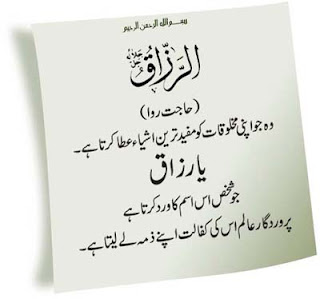 بسم اللہ الرحمن الرحیم
الرَّزَّاقُ جل جلالہ
(حاجت روا)
وہ جو اپنی مخلوقات کو مفید ترین اشیاء عطا کرتا ہے۔
یا رزاق
جو شخص اس اسم کا ورد کرتا ہے
پروردگار عالم اس کی کفالت اپنے ذمہ لے لیتا ہے۔